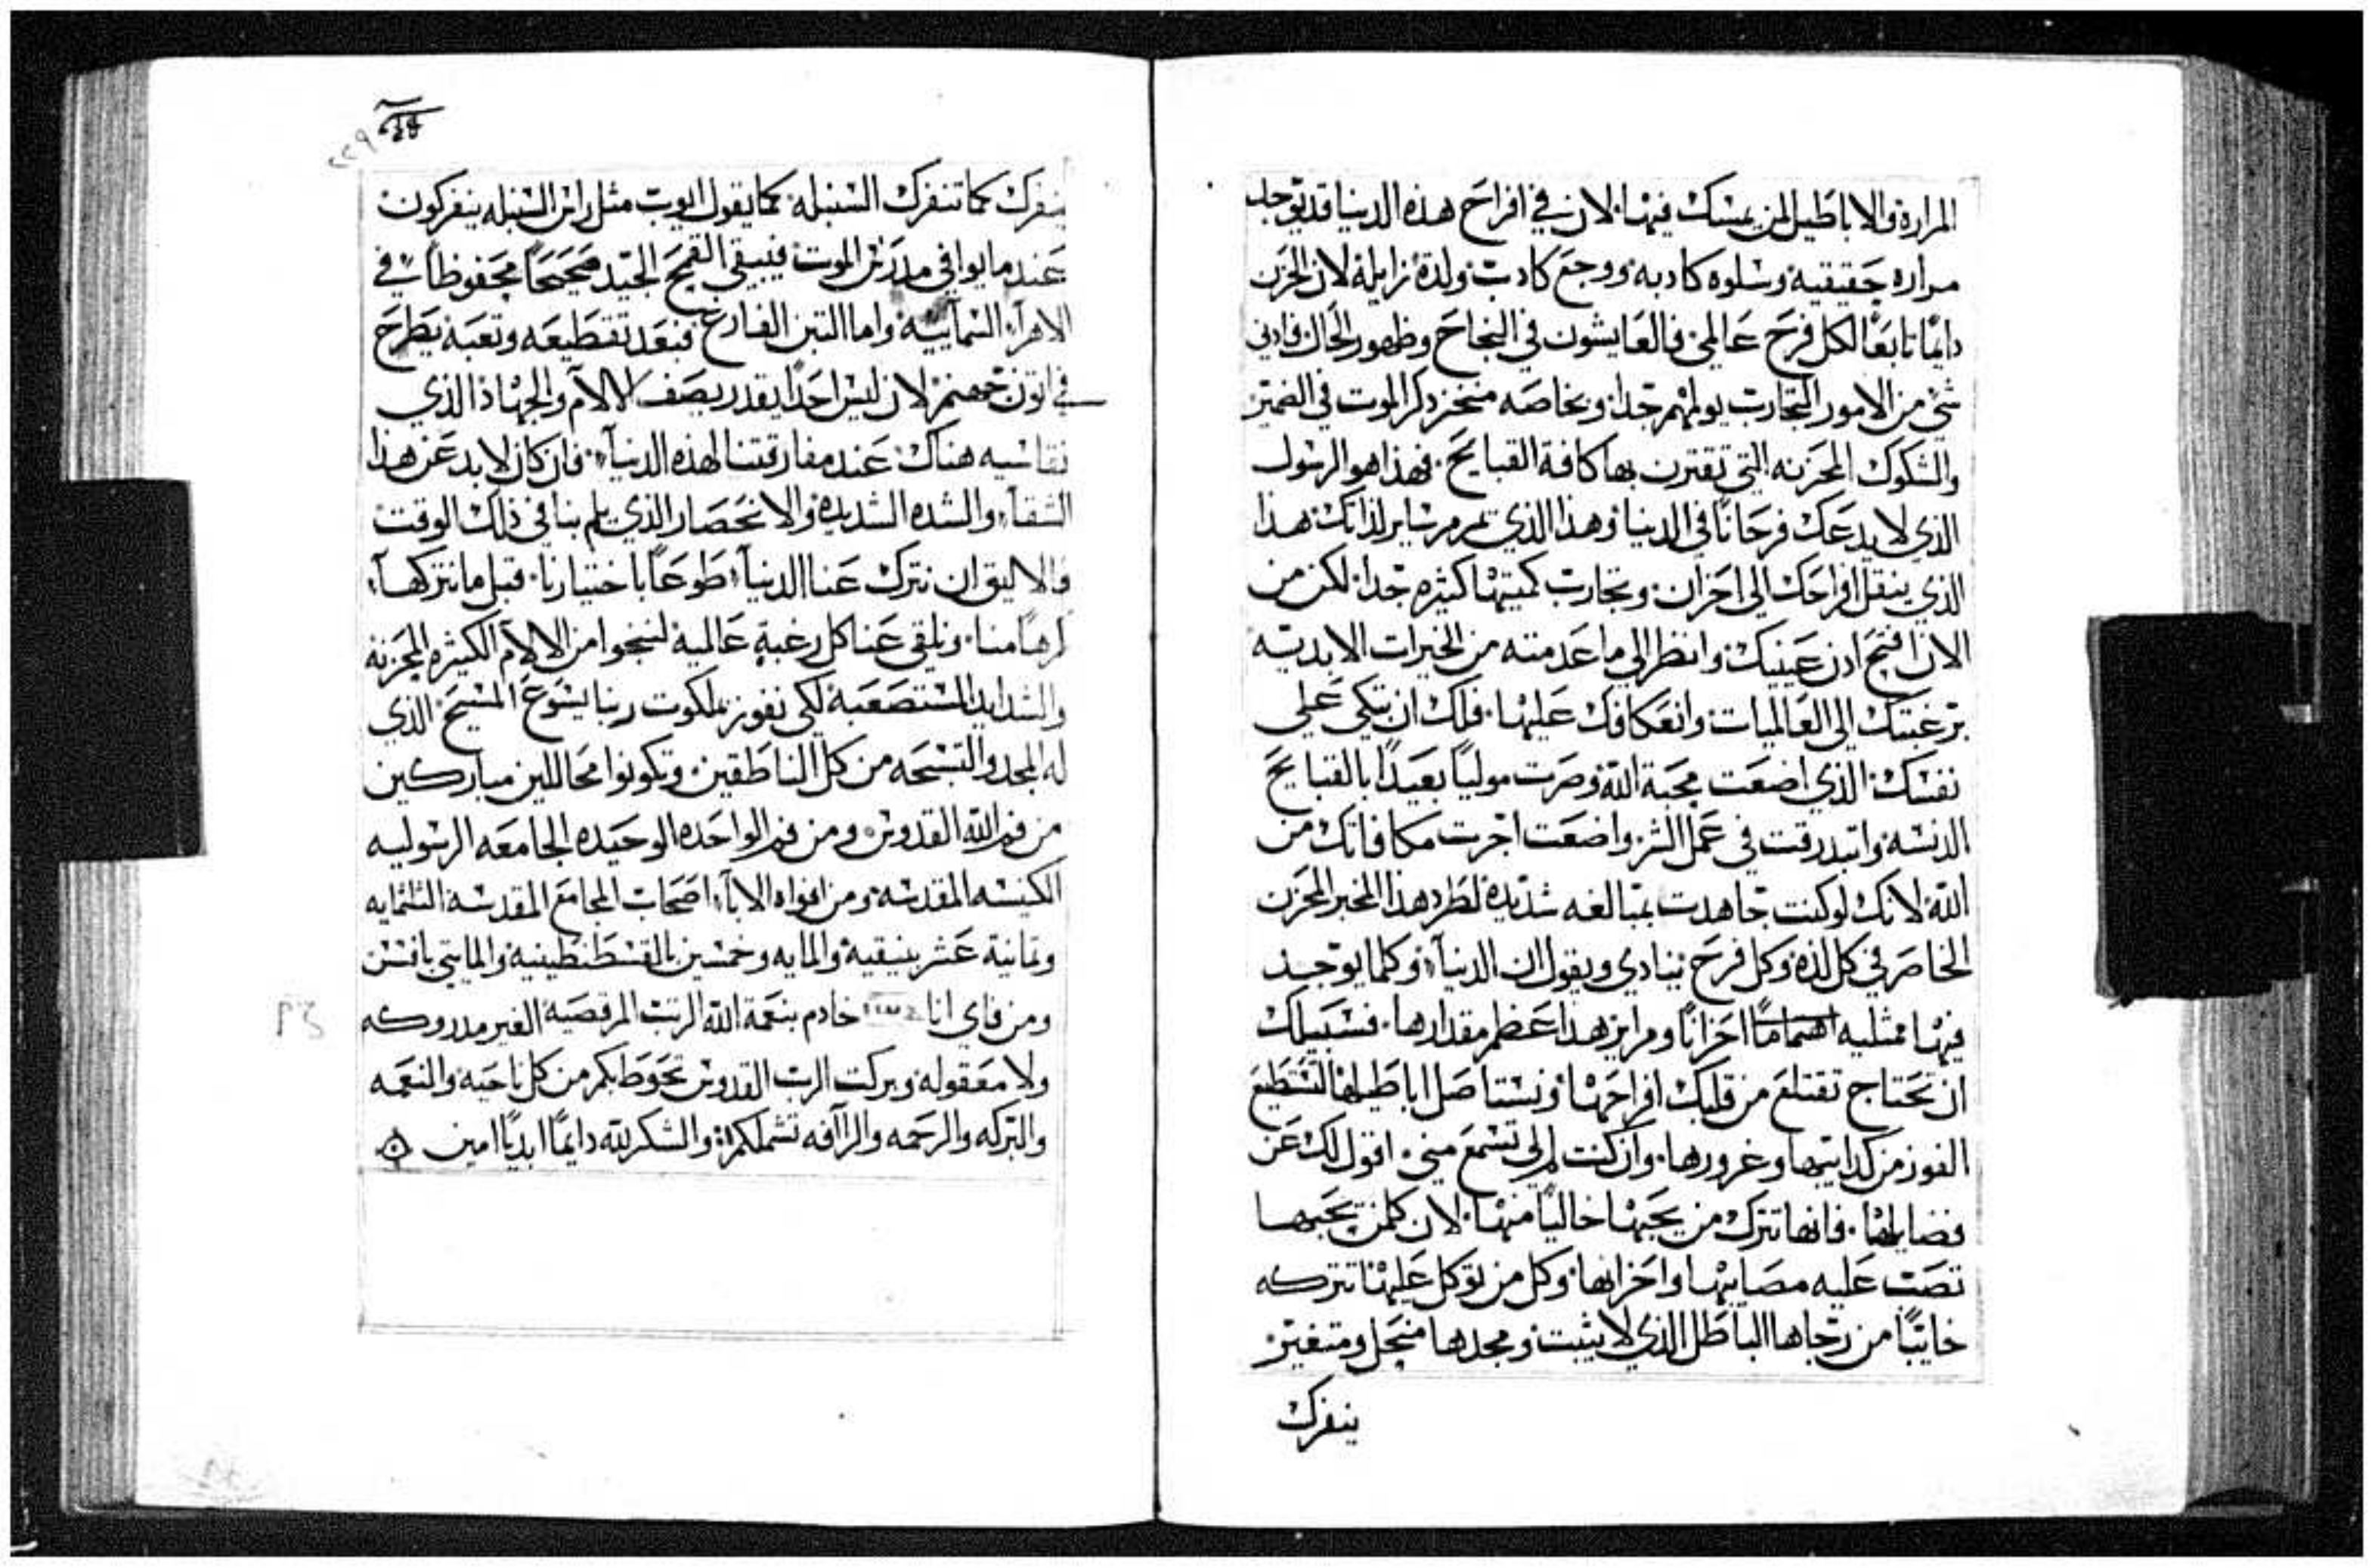 المرارة والاباطيل لمن يمسك فيها. لان في افراح هذه الدنيا قد توجد
مراره حقيقية وسلوه كادبه ووجع كادب ولدة زايلة لان الحزن
دايمًا تابعًا لكل فرح عالمي فالعايشون في النجاح وظهور الحال فادني
شي من الامور التجارب يولمهم جدا وبخاصه منخز دكر الموت في الضمير
والشكوك المحزنه التي تقترن بها كافة القبايح. فهذا هو الرسول
الذي لا يدعك فرحانًا في الدنيا وهذا الذي يمرمر ساير لذاتك هذا
الذي ينقل افراحك الى احزان وتجارب كميتها كثيره جدا. لكن من
الان افتح ادن عينيك وانظر الي ما عدمته من الخيرات الابديه
برغبتك الي العالميات وانعكافك عليها. فلك ان تبكي علي
نفسك الذي اضعت محبة الله وصرت موليًا بعيدًا بالقبايح
الدنسه واتبدرقت في عمل الشر واضعت اجرت مكافاتك من
الله لانك لو كنت جاهدت بمبالغه شديدة لطرد هذا المخبر المحزن
الخاصر في كل لذه وكل فرح ينادي ويقول ان الدنيا وكلما يوجد
فيها ممثليه اهتمامًا احزانًا ومراير هدا عضم مقدارها. فسبيلك
ان تحتاج تقتلع من قلبك افراحها وتستاصل اباطيلها لتستطيع
الفوز من كدابيتها وغرورها. وان كنت لم لي تسمع مني. اقول لك عن
فضايلها. فانها تترك من يحبها خاليًا منها. لان كلمن يحبها
تصب عليه مصايبها واحزانها وكل من توكل عليها تتركه
خايبًا من رجاها الباطل الذي لا يثبت ومجدها منحل ومتغير
ينفرك
٢٢٩
ينفرك كما تنفرك السنبله. كما يقول ايوب مثل راس السنبله ينفركون
عند ما يوافي مدرس الموت فيبقي القمح الجيد صحيحًا محفوظًا في
الاهرآء السمآييه واما التبن الفارغ فبعد تقطيعه وتعبه يطرح
في اتون جهنم لان ليس احدًا يقدر يصف الالام والجهاد الذي
نقاسيه هناك عند مفارقتنا لهذه الدنيآ. فان كان لا بد عن هذا
الشقآ والشده الشديده والانحصار الذي يلم بنا في ذلك الوقت
والاليق ان نترك عنا الدنيآ طوعًا باختيارنا. قبل ما نتركهآ
كرهًا منا. ونلقي عنا كل رغبة عالمية لننجوا من الالام الكثيره المحزنه
والشدايد المستصعبه لكي نفوز بملكوت ربنا يسوع المسيح الذي
له المجد والتسبحه من كل الناطقين. وتكونوا محاللين مباركين
من فم الله القدوس ومن فم الواحده الوحيده الجامعه الرسوليه
الكنيسه المقدسه ومن افواه الابآء اصحاب المجامع المقدسه الثلثمايه
وتمانية عشر بنيقية والمايه وخمسين بالقسطنطينيه والمايتي بافسس
ومن فاي انا خادم بنعمة الله الرتب المرقصيه الغير مدروكه
ولا معقوله وبركت الرب القدوس تحوط بكم من كل ناحيه والنعمه
والبركه والرحمه والراافه تشملكم والشكر لله دايمًا ابديًا امين